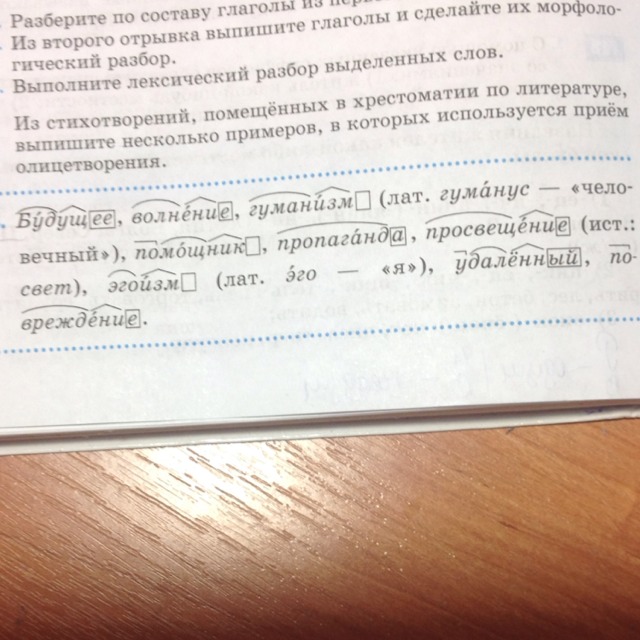 Разберите по составу глаголы из
Из второго отрывка выпишите глаголы и сделайте их морфоло-
гический разбор.
Выполните лексический разбор выделенных слов.
Из стихотворений, помещённых в хрестоматии по литературе,
выпишите несколько примеров, в которых используется приём
олицетворения.
Бу́дущее, волне́ние, гумани́зм (лат. гума́нус — «чело-
вечный»), помо́щник, пропага́нда, просвеще́ние (ист.:
свет), эгои́зм (лат. э́го — «я»), удалённый, по-
врежде́ние.